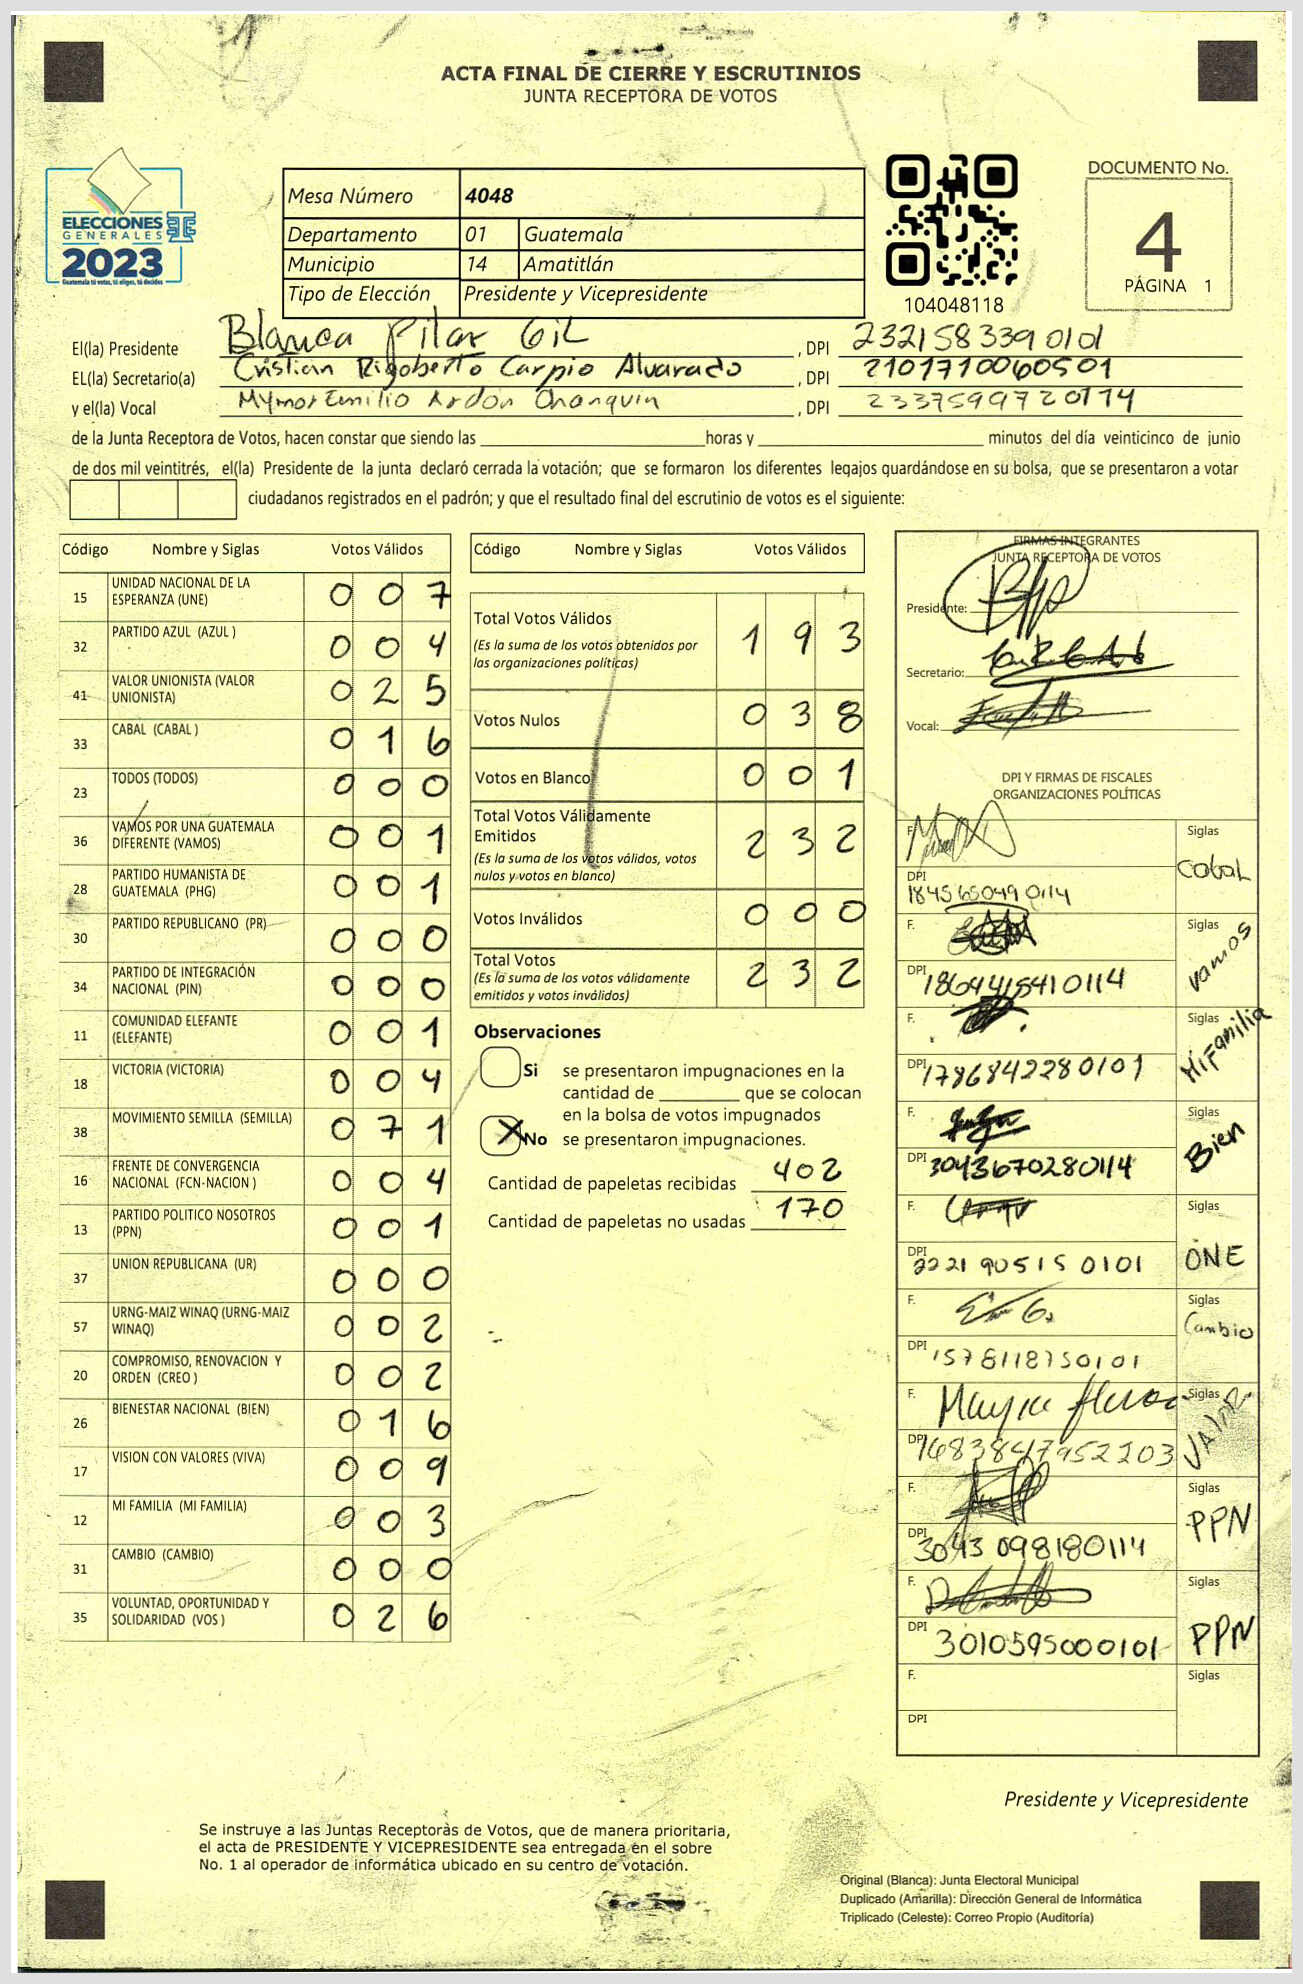 ACTA FINAL DE CIERRE Y ESCRUTINIOS
JUNTA RECEPTORA DE VOTOS
ELECCIONES
GENERALES
2023
Guatemala tú votas, tú eliges, tú decides
Mesa Número 4048
Departamento 01 Guatemala
Municipio 14 Amatitlán
Tipo de Elección Presidente y Vicepresidente
104048118
DOCUMENTO No.
4
PÁGINA 1
El(la) Presidente Blanca Pilar Gil , DPI 2321583390101
EL(la) Secretario(a) Cristian Rigoberto Carpio Alvarado , DPI 2101710060501
y el(la) Vocal Emilio Ardon , DPI 2337599720114
de la Junta Receptora de Votos, hacen constar que siendo las horas y minutos del día veinticinco de junio
de dos mil veintitrés, el(la) Presidente de la junta declaró cerrada la votación; que se formaron los diferentes legajos guardándose en su bolsa, que se presentaron a votar
ciudadanos registrados en el padrón; y que el resultado final del escrutinio de votos es el siguiente:
Código Nombre y Siglas Votos Válidos
15 UNIDAD NACIONAL DE LA ESPERANZA (UNE) 0 0 7
32 PARTIDO AZUL (AZUL ) 0 0 4
41 VALOR UNIONISTA (VALOR UNIONISTA) 0 2 5
33 CABAL (CABAL ) 0 1 6
23 TODOS (TODOS) 0 0 0
36 VAMOS POR UNA GUATEMALA DIFERENTE (VAMOS) 0 0 1
28 PARTIDO HUMANISTA DE GUATEMALA (PHG) 0 0 1
30 PARTIDO REPUBLICANO (PR) 0 0 0
34 PARTIDO DE INTEGRACIÓN NACIONAL (PIN) 0 0 0
11 COMUNIDAD ELEFANTE (ELEFANTE) 0 0 1
18 VICTORIA (VICTORIA) 0 0 4
38 MOVIMIENTO SEMILLA (SEMILLA) 0 7 1
16 FRENTE DE CONVERGENCIA NACIONAL (FCN-NACION ) 0 0 4
13 PARTIDO POLITICO NOSOTROS (PPN) 0 0 1
37 UNION REPUBLICANA (UR) 0 0 0
57 URNG-MAIZ WINAQ (URNG-MAIZ WINAQ) 0 0 2
20 COMPROMISO, RENOVACION Y ORDEN (CREO ) 0 0 2
26 BIENESTAR NACIONAL (BIEN) 0 1 6
17 VISION CON VALORES (VIVA) 0 0 9
12 MI FAMILIA (MI FAMILIA) 0 0 3
31 CAMBIO (CAMBIO) 0 0 0
35 VOLUNTAD, OPORTUNIDAD Y SOLIDARIDAD (VOS ) 0 2 6
Código Nombre y Siglas Votos Válidos
Total Votos Válidos 1 9 3
(Es la suma de los votos obtenidos por
las organizaciones políticas)
Votos Nulos 0 3 8
Votos en Blanco 0 0 1
Total Votos Válidamente
Emitidos 2 3 2
(Es la suma de los votos válidos, votos
nulos y votos en blanco)
Votos Inválidos 0 0 0
Total Votos 2 3 2
(Es la suma de los votos válidamente
emitidos y votos inválidos)
Observaciones
Si se presentaron impugnaciones en la
cantidad de que se colocan
en la bolsa de votos impugnados
X No se presentaron impugnaciones.
Cantidad de papeletas recibidas 402
Cantidad de papeletas no usadas 170
FIRMAS INTEGRANTES
JUNTA RECEPTORA DE VOTOS
Presidente:
Secretario:
Vocal:
DPI Y FIRMAS DE FISCALES
ORGANIZACIONES POLÍTICAS
F. Siglas
Cabal
DPI 1845650490114
F. Siglas
Vamos
DPI 1864415410114
F. Siglas
Mi Familia
DPI 1786842280101
F. Siglas
Bien
DPI 3043670280114
F. Siglas
UNE
DPI 2221905150101
F. Siglas
Cambio
DPI 1578118750101
F. Siglas
DPI
F. Siglas
PPN
DPI 3043098180114
F. Siglas
PPN
DPI 3010595000101
F. Siglas
DPI
Presidente y Vicepresidente
Se instruye a las Juntas Receptoras de Votos, que de manera prioritaria,
el acta de PRESIDENTE Y VICEPRESIDENTE sea entregada en el sobre
No. 1 al operador de informática ubicado en su centro de votación.
Original (Blanca): Junta Electoral Municipal
Duplicado (Amarilla): Dirección General de Informática
Triplicado (Celeste): Correo Propio (Auditoría)